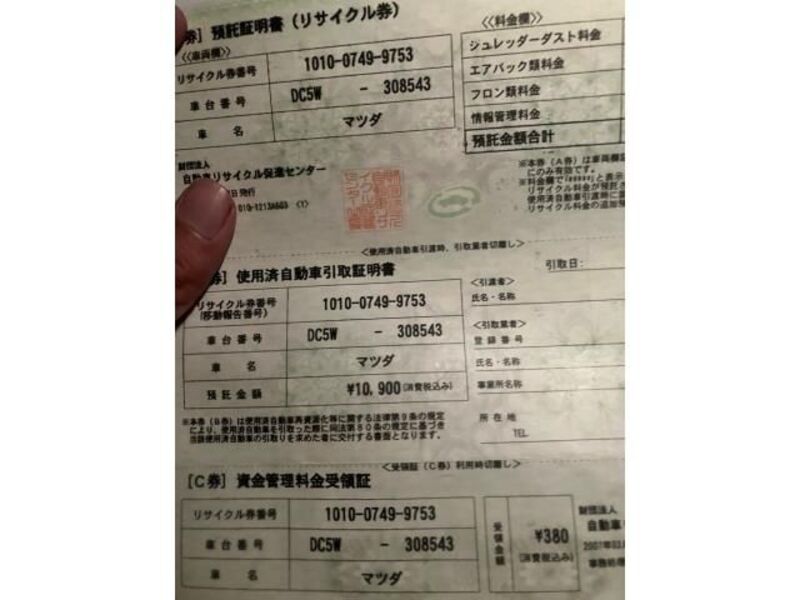 券］預託証明書（リサイクル券）
≪車両欄≫
リサイクル券番号 1010-0749-9753
車台番号 DC5W - 308543
車名 マツダ
≪料金欄≫
シュレッダーダスト料金
エアバック類料金
フロン類料金
情報管理料金
預託金額合計
財団法人
自動車リサイクル促進センター
発行
※本券（A券）は車両欄
にのみ有効です。
※料金欄で「#####」と表示
リサイクル料金が預託
使用済自動車引渡時に
リサイクル料金の追加
＜使用済自動車引渡時、引取業者切離し＞
券］使用済自動車引取証明書
引取日：
リサイクル券番号
(移動報告番号) 1010-0749-9753
車台番号 DC5W - 308543
車名 マツダ
預託金額 ¥10,900(消費税込み)
＜引渡者＞
氏名・名称
＜引取業者＞
登録番号
氏名・名称
事業所名称
所在地
TEL
※本券（B券）は使用済自動車再資源化等に関する法律第9条の規定
により、使用済自動車を引取った際に同法第80条の規定に基づき
当該使用済自動車の引取りを求めた者に交付する書面となります。
＜受領証（C券）利用時切離し＞
［C券］資金管理料金受領証
リサイクル券番号 1010-0749-9753
車台番号 DC5W - 308543
車名 マツダ
受領金額 ¥380
(消費税込み)
財団法人
自動車
事務処理